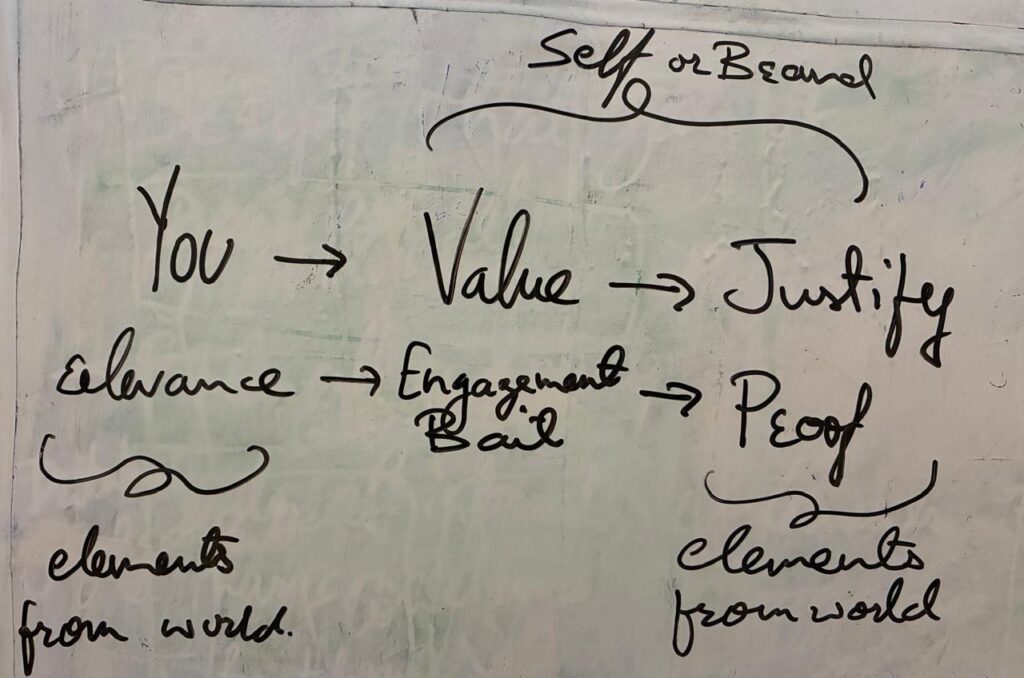 Self or Brand
You → Value → Justify
relevance → Engagement Bait → Proof
elements from world.
elements from world